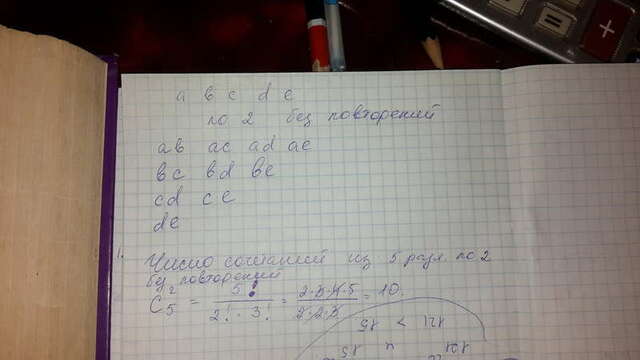 а в с d е
по 2 без повторений
ав ас ad ае
вс вd ве
cd се
de
1. Число сочетаний из 5 разл по 2
без повторений
C₅² = 5! / 2! · 3! = 2·3·4·5 / 2·2·3 = 10.